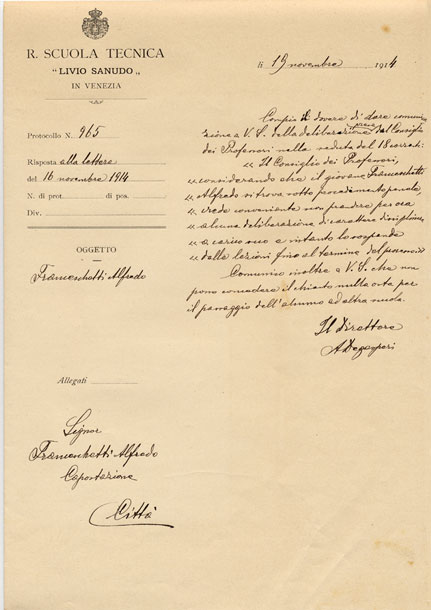 R. SCUOLA TECNICA
" LIVIO SANUDO „
IN VENEZIA
Protocollo N. 965
Risposta alla lettera
del 16 novembre 1914
N. di prot. di pos.
Div.
OGGETTO
Franceschetti Alfredo
Allegati
Signor
Franceschetti Alfredo
Città
li 19 novembre 1914
Compio il dovere di dare comuni
cazione a V. S. della deliberazione presa dal Consiglio
dei Professori nella seduta del 18 corr.:
" Il Consiglio dei Professori,
" considerando che il giovane Franceschetti
" Alfredo si trova sotto procedimento penale,
" crede conveniente non prendere per ora
" alcuna deliberazione di carattere disciplinare
" a carico suo e intanto lo sospende
" dalle lezioni fino al termine del processo "
Comunico inoltre a V. S. che non
posso concedere il chiesto nulla osta per
il passaggio dell'alunno ad altra scuola.
Il Direttore